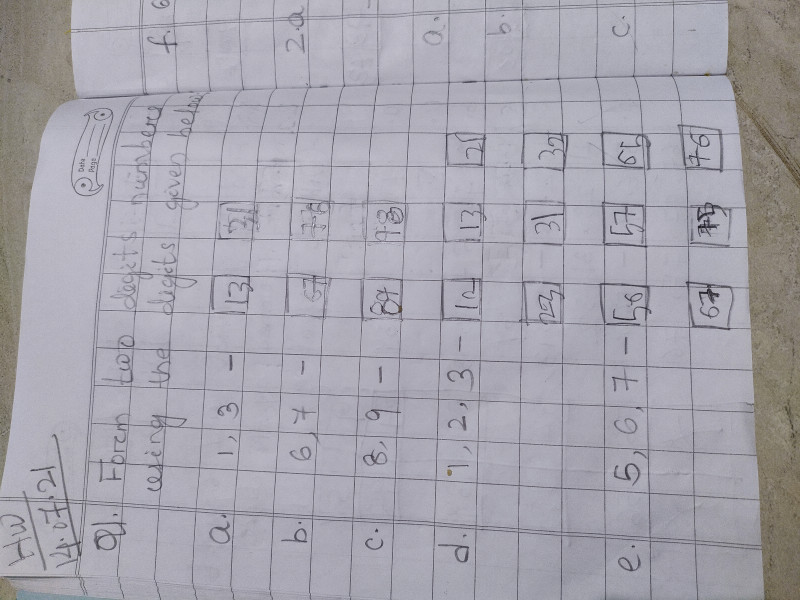 f. 6
2.a
a.
b.
c.
Date
Page
HW
14.07.21
Q1. Form two digits numbers
using the digits given below
a. 1, 3 - 13 31
b. 6, 7 - 67 76
c. 8, 9 - 89 98
d. 1, 2, 3 - 12 13 21
23 31 32
e. 5, 6, 7 - 56 57 65
67 75 76